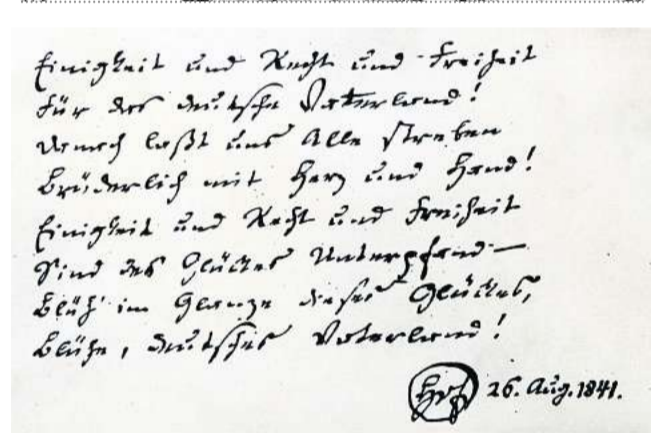 Einigkeit und Recht und Freiheit
Für das deutsche Vaterland!
Danach laßt uns Alle streben
Brüderlich mit Herz und Hand!
Einigkeit und Recht und Freiheit
Sind des Glückes Unterpfand —
Blüh' im Glanze dieses Glückes,
Blühe, deutsches Vaterland!
HvF 26. Aug. 1841.